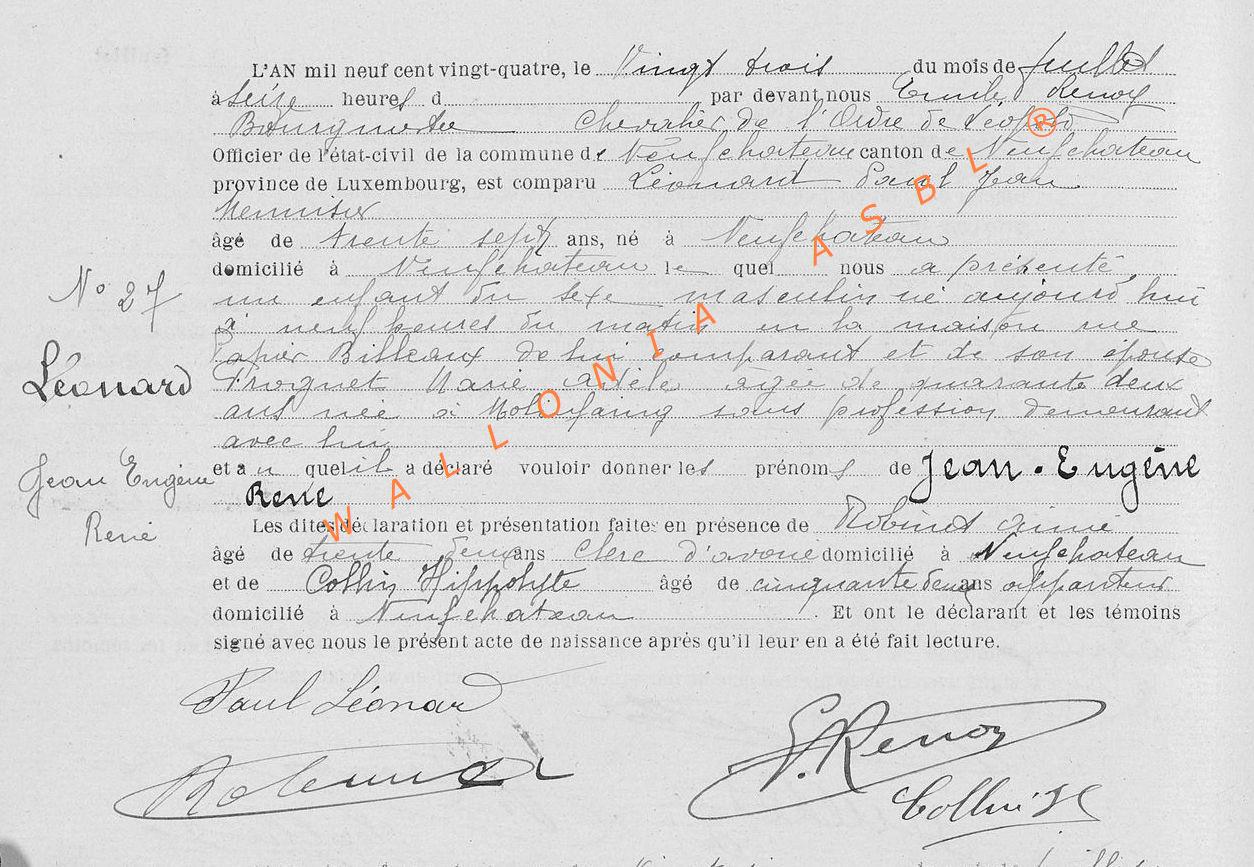 L'AN mil neuf cent vingt-quatre, le Vingt trois du mois de juillet
à seize heures d par devant nous Emile Renoy
Bourgmestre Chevalier de l'Ordre de Léopold
Officier de l'état-civil de la commune de Neufchateau canton de Neufchateau
province de Luxembourg, est comparu Léonard Paul Jean
Menuisier
âgé de trente sept ans, né à Neufchateau
domicilié à Neufchateau lequel nous a présenté
N° 27
un enfant du sexe masculin né aujourd'hui
à neuf heures du matin en la maison rue
Papier Billeaux de lui comparant et de son épouse
Léonard
Marie Adèle âgée de quarante deux
ans née à Molinfaing sans profession demeurant
avec lui
et auquel il a déclaré vouloir donner les prénoms de Jean - Eugène
Jean Eugène
René
René
Les dites déclaration et présentation faites en présence de Robinet Aimé
âgé de trente deux ans clerc d'avoué domicilié à Neufchateau
et de Collin Hippolyte âgé de cinquante deux ans appariteur
domicilié à Neufchateau. Et ont le déclarant et les témoins
signé avec nous le présent acte de naissance après qu'il leur en a été fait lecture.
Paul Léonard
E. Renoy
Collin H
WALLONIA ASBL ®